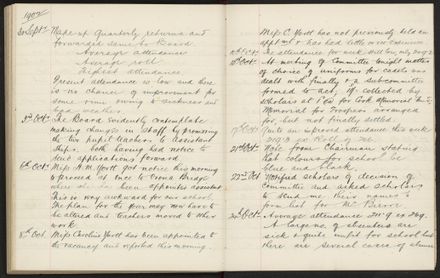 1902
30 Sept. Made up Quarterly returns and
forwarded same to Board
Average attendance
Average roll
Highest attendance
Present attendance is low and there
is no chance of improvement for
some time owing to sickness and
bad weather.
The Board evidently contemplate
making changes in Staff by promoting
the two pupil teachers to assistant
ships. both having had notice to
send applications forward.
6th Oct. Miss H. M. got notice this morning
to proceed by train to
where she has been appointed assistant
This is very awkward for our school.
The plan for the year may now have to
be altered and teachers moved to other
work.
8th Oct. Miss Caroline Yorth has been appointed to
the vacancy and reported this morning.
Miss C. Yorth has not previously held an
appt and has had little or no experience
The attendance for week still low
At meeting of Committee tonight matter
of choice of uniforms for cadets was
dealt with finally & a subcommittee
formed to act; if collected by
scholars at
Memorial for Troopers arranged
for, but not finally settled.
17th Oct. Quite an improved attendance this week
Roll of 262.
21st Oct. Note from Chairman stating
that colours for school be
blue and black.
22nd Oct. Notified scholars of decision of
Committee and asked scholars
to send me their names
24th Oct. Average attendance 211.9 ex 269.
A large no of absentees are
sick & quite unfit for school but
there are several cases of